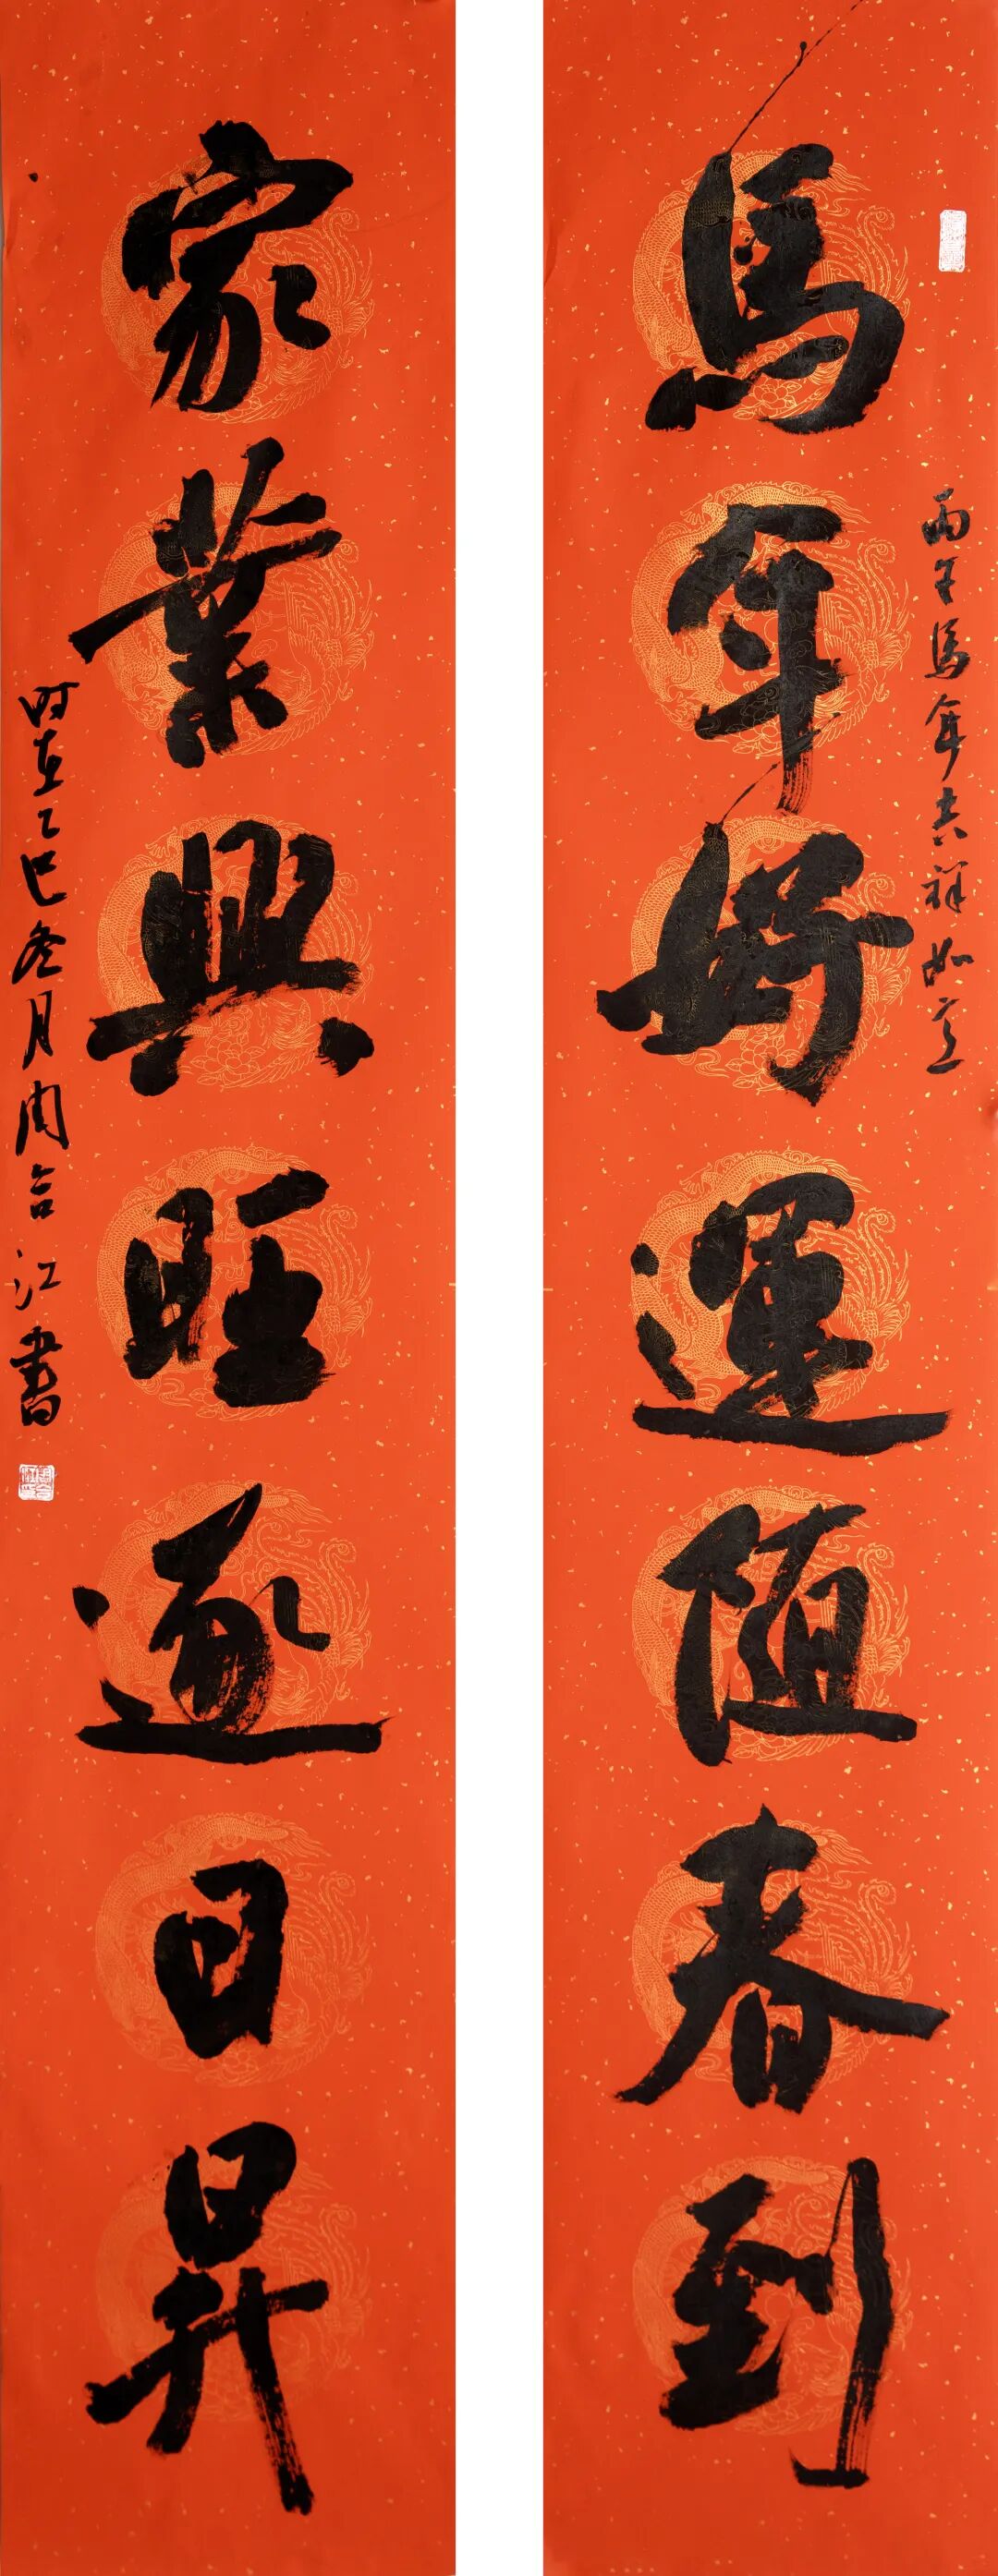 丙午馬年吉祥如意
馬年好運随春到
家業興旺逐日昇
时在乙巳冬月周合江書